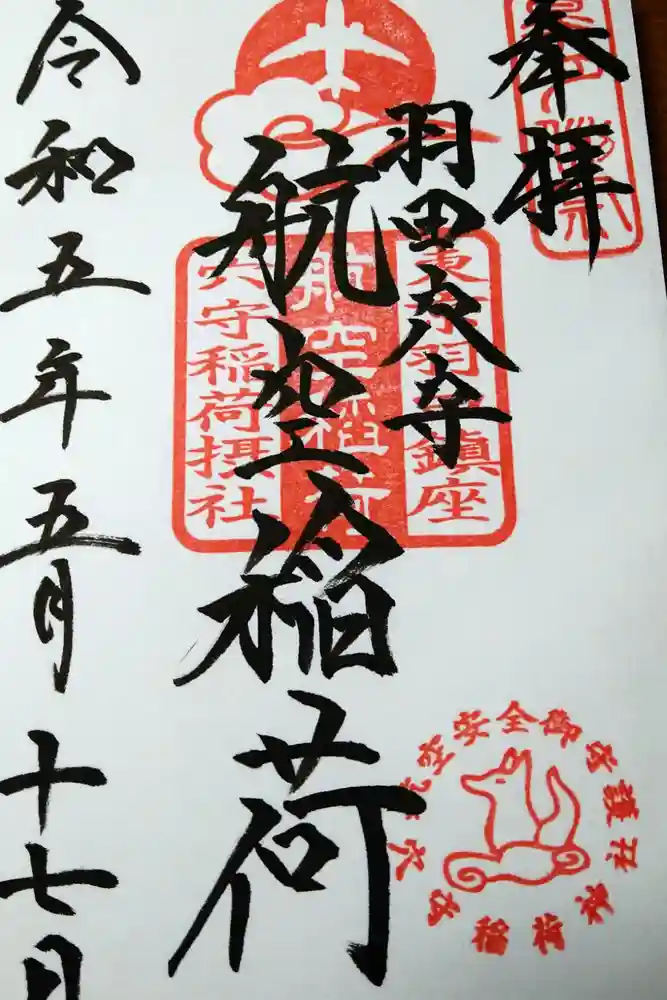 奉拝
羽田穴守
航空稲荷
令和五年五月十七日
東京羽田鎮座
航空稲荷
穴守稲荷摂社
空安全御守護
穴守稲荷神社